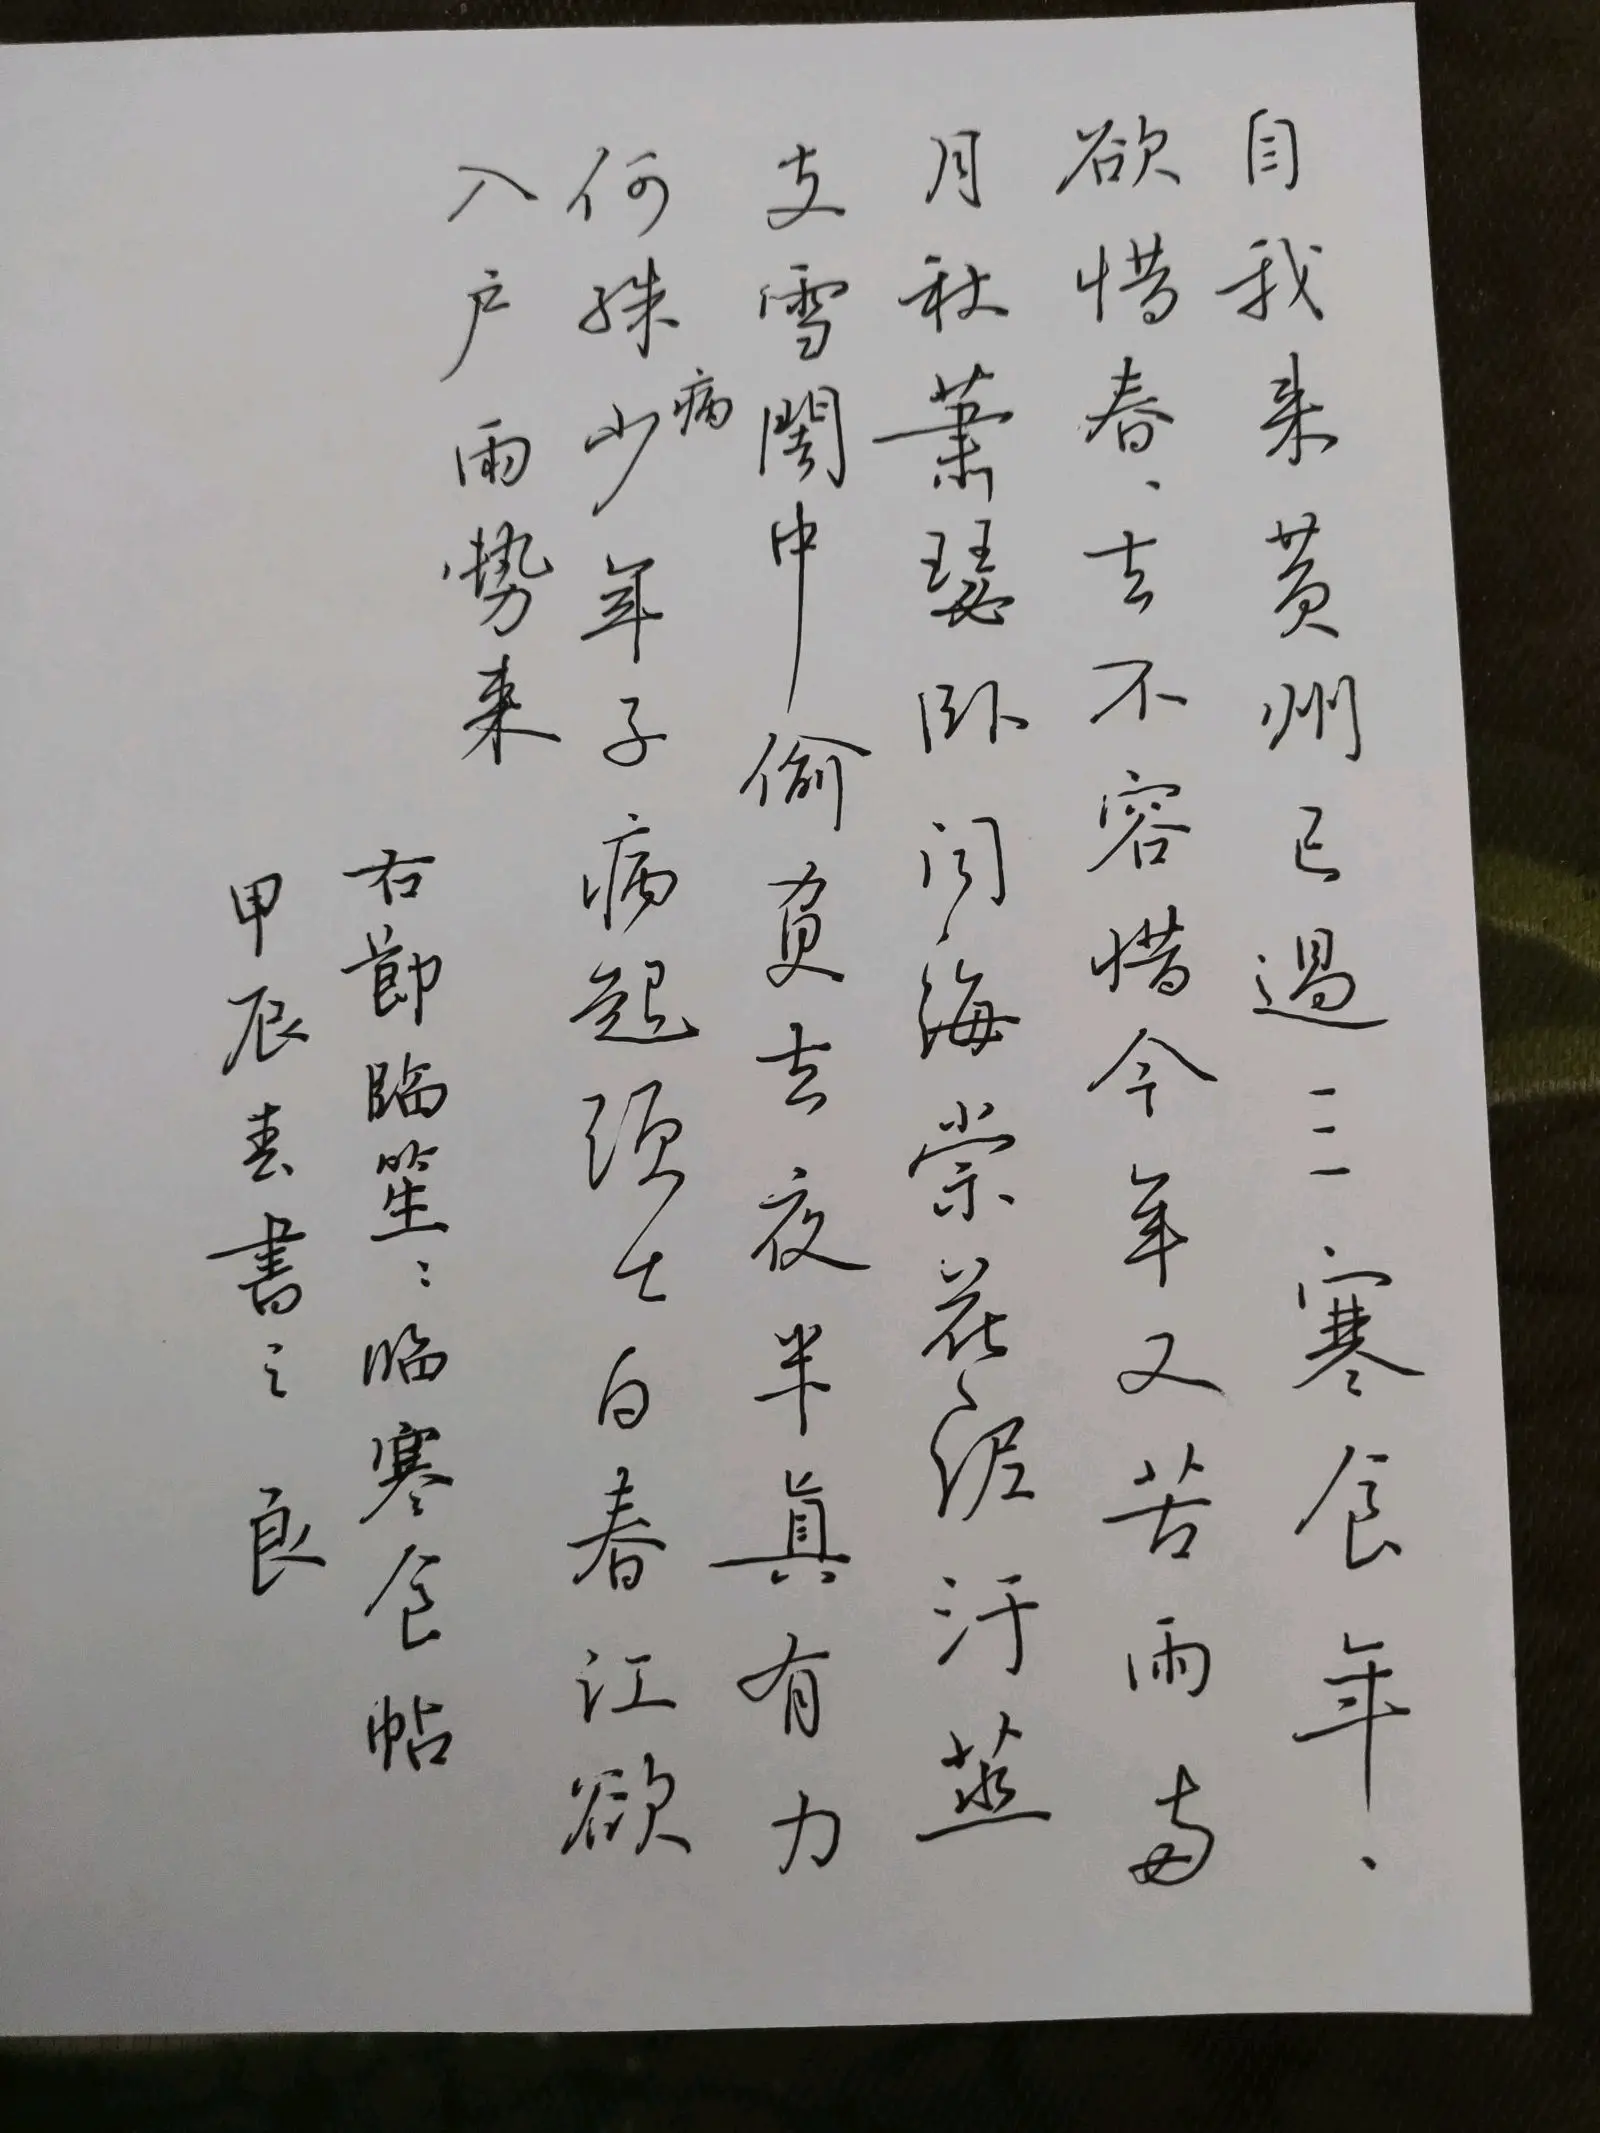 自我来黄州已過三寒食年、
欲惜春、去不容惜今年又苦雨两
月秋蕭瑟卧闻海棠花泥汙燕
支雪闇中偷負去夜半真有力
何殊少年子病起须已白春江欲
病
入户雨势来
右節臨笙〻临寒食帖
甲辰春書之 良